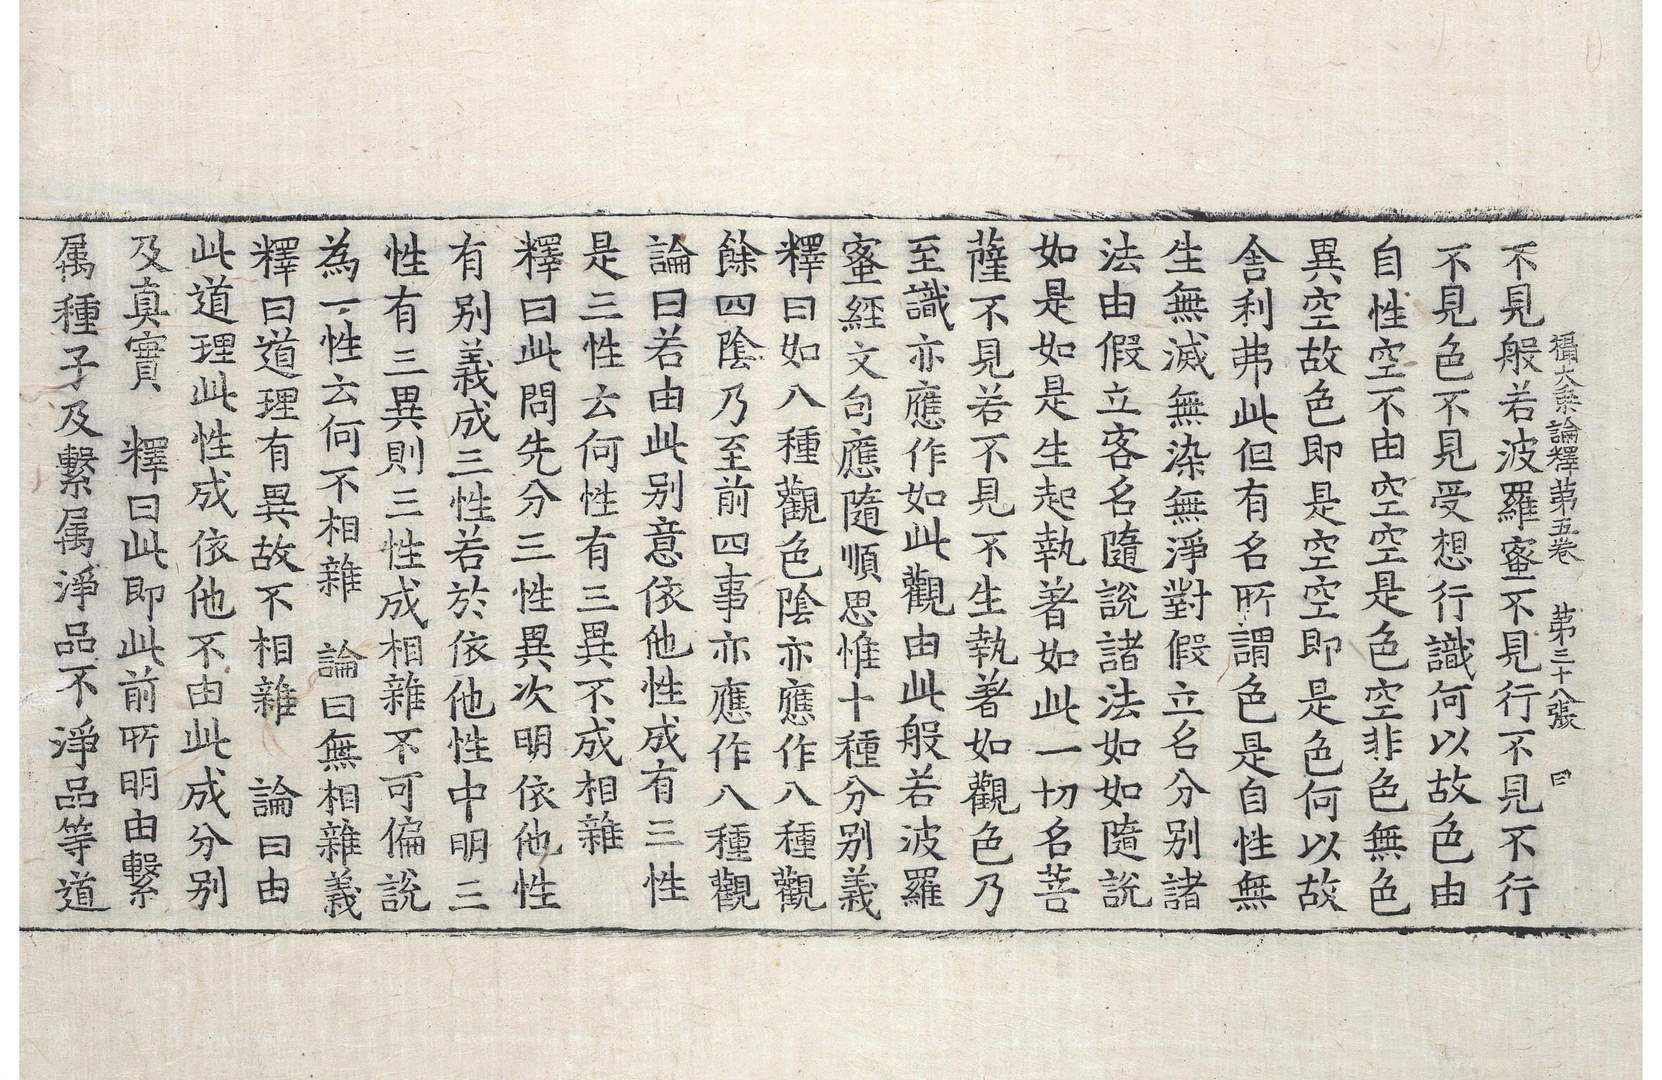 攝大乘論釋第五卷　第三十八張　曰
不見般若波羅蜜不見行不見不行
不見色不見受想行識何以故色由
自性空不由空空空是色色空非色無色
異空故色即是空空即是色何以故
舍利弗此但有名所謂色是自性無
生無滅無染無淨對假立名分別諸
法由假立客名隨說諸法如如隨說
如是如是生起執著如此一切名菩
薩不見若不見不生執著如觀色乃
至識亦應作如此觀由此般若波羅
蜜經文句應隨順思惟十種分別義
釋曰如八種觀色陰亦應作八種觀
餘四陰乃至前四事亦應作八種觀
論曰若由此別意依他性成有三性
是三性云何性有三異不成相雜
釋曰此問先分三性異次明依他性
有別義成三性若於依他性中明三
性有三異則三性成相雜不可偏說
為一性云何不相雜　論曰無相雜義
釋曰道理有異故不相雜　論曰由
此道理此性成依他不由此成分別
及真實　釋曰此即此前所明由繫
属種子及繫属淨品不淨品等道